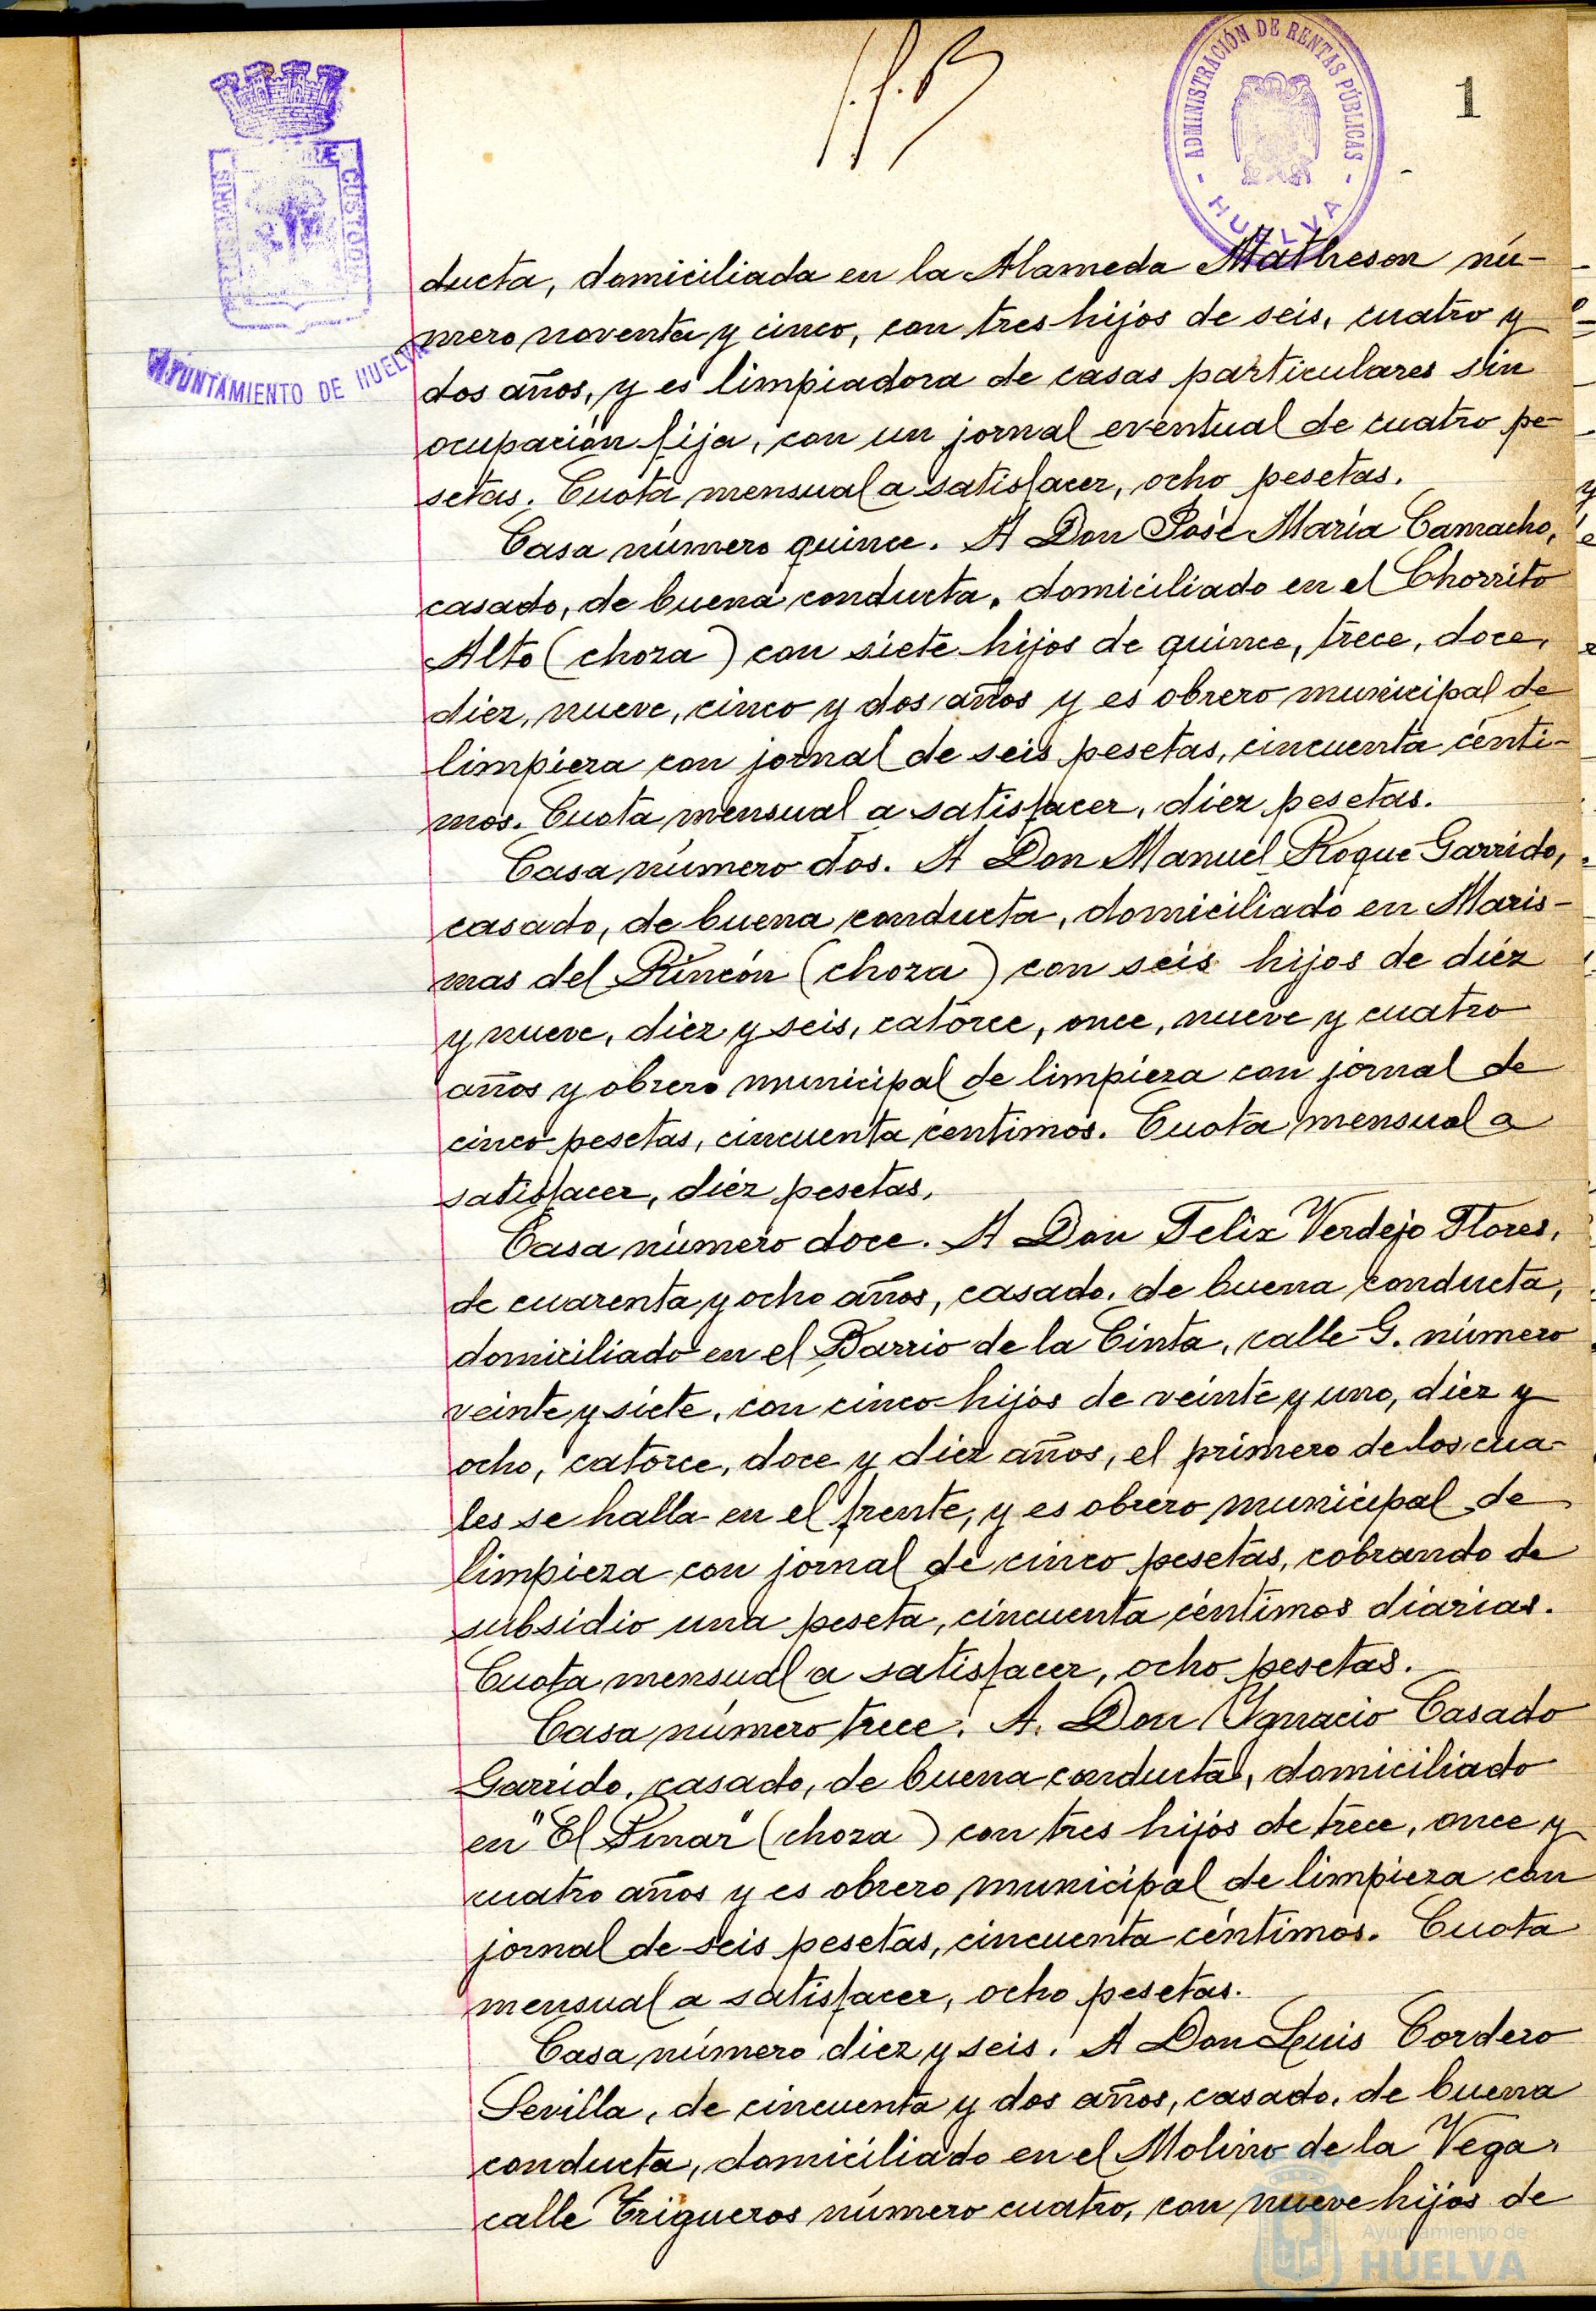 ADMINISTRACIÓN DE RENTAS PÚBLICAS
- HUELVA -
1
CUSTODIA
AYUNTAMIENTO DE HUELVA
ducta, domiciliada en la Alameda Matheson nú-
mero noventa y cinco, con tres hijos de seis, cuatro y
dos años, y es limpiadora de casas particulares sin
ocupación fija, con un jornal eventual de cuatro pe-
setas. Cuota mensual a satisfacer, ocho pesetas.
Casa número quince. A Don José María Camacho,
casado, de buena conducta, domiciliado en el Chorrito
Alto (choza) con siete hijos de quince, trece, doce,
diez, nueve, cinco y dos años y es obrero municipal de
limpieza con jornal de seis pesetas, cincuenta cénti-
mos. Cuota mensual a satisfacer, diez pesetas.
Casa número dos. A Don Manuel Roque Garrido,
casado, de buena conducta, domiciliado en Maris-
mas del Rincón (choza) con seis hijos de diez
y nueve, diez y seis, catorce, once, nueve y cuatro
años y obrero municipal de limpieza con jornal de
cinco pesetas, cincuenta céntimos. Cuota mensual a
satisfacer, diez pesetas.
Casa número doce. A Don Felix Verdejo Flores,
de cuarenta y ocho años, casado, de buena conducta,
domiciliado en el Barrio de la Cinta, calle G. número
veinte y siete, con cinco hijos de veinte y uno, diez y
ocho, catorce, doce y diez años, el primero de los cua-
les se halla en el frente, y es obrero municipal de
limpieza con jornal de cinco pesetas, cobrando de
subsidio una peseta, cincuenta céntimos diarias.
Cuota mensual a satisfacer, ocho pesetas.
Casa número trece. A. Don Ygnacio Casado
Garrido, casado, de buena conducta, domiciliado
en "El Pinar" (choza) con tres hijos de trece, once y
cuatro años y es obrero municipal de limpieza con
jornal de seis pesetas, cincuenta céntimos. Cuota
mensual a satisfacer, ocho pesetas.
Casa número diez y seis. A Don Luis Cordero
Sevilla, de cincuenta y dos años, casado, de buena
conducta, domiciliado en el Molino de la Vega,
calle Trigueros número cuatro, con nueve hijos de
Ayuntamiento de
HUELVA